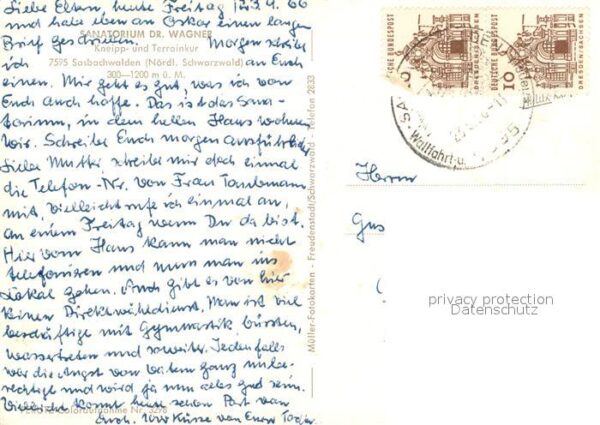 Liebe Eltern, heute Freitag 23.9.66
und habe eben an Oskar einen langen
Brief geschrieben. Morgen schreibe
ich an Euch
SANATORIUM DR. WAGNER
Kneipp- und Terrainkur
7595 Sasbachwalden (Nördl. Schwarzwald)
300—1200 m ü. M.
einen. Mir geht es gut, was ich von
Euch auch hoffe. Das ist das Sana-
torium, in dem hellen Haus wohnen
wir. Schreibe Euch morgen ausführlicher
Liebe Mutter schreibe mir doch einmal
die Telefon-Nr. von Frau Taubmann
mit, vielleicht rufe ich einmal an,
an einem Freitag wenn Du da bist.
Hier vom Haus kann man nicht
telefonieren und muss man ins
Lokal gehen. Auch gibt es von hier
keinen Direktwähldienst. Man ist viel
beschäftigt mit Gymnastik, bürsten,
wassertreten und so weiter. Jedenfalls
war die Angst von Vatem ganz unbe-
rechtigt und wird ja nun alles gut sein.
Vielleicht kommt heute schon Post von
Euch. 1000 Küsse von Eurer
Farbaufnahme Nr. 3276
Müller-Fotokarten - Freudenstadt/Schwarzwald - Telefon 2833
DEUTSCHE BUNDESPOST
10
DRESDEN-SACHSEN
DEUTSCHE BUNDESPOST
10
DRESDEN-SACHSEN
Wallfahrt
Herrn
Gus
privacy protection
Datenschutz